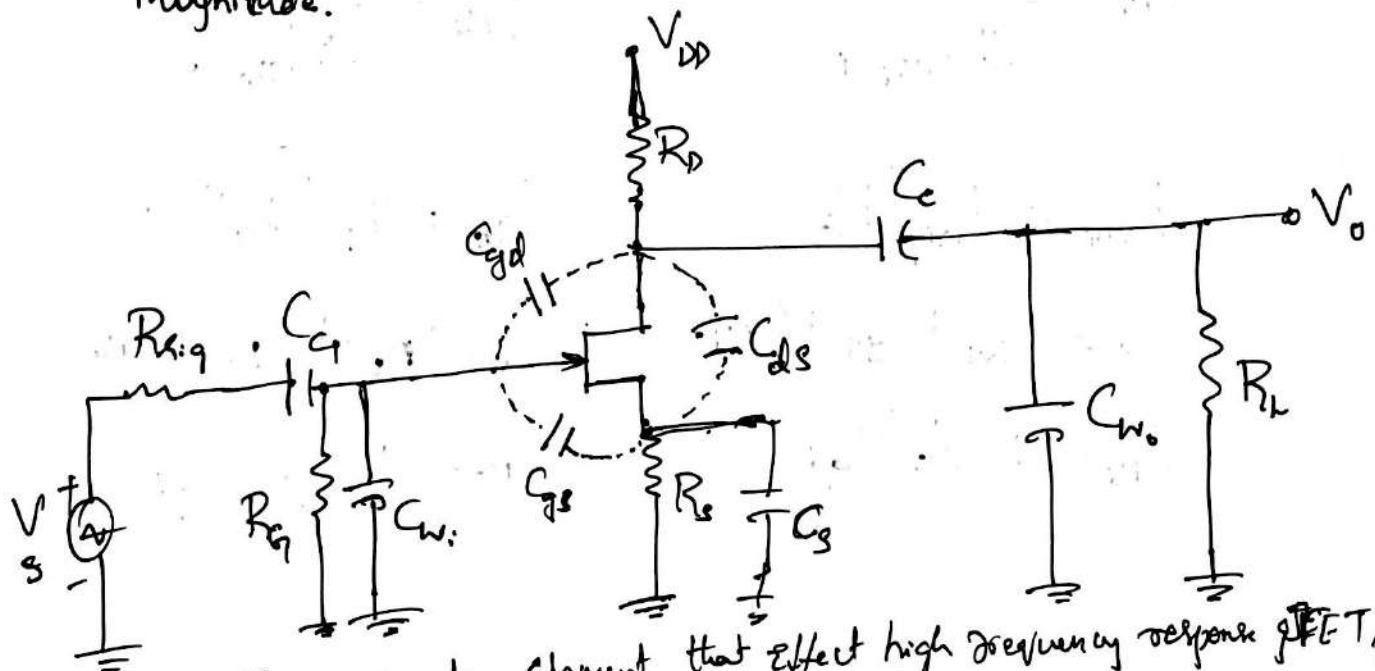 Magnitude.
V_DD
R_D
C_c
V_o
C_gd
R_sig
C_G
C_ds
R_L
C_Wo
C_gs
R_s
C_s
R_G
C_Wi
V_s
+
-
element that effect high frequency response JFET.